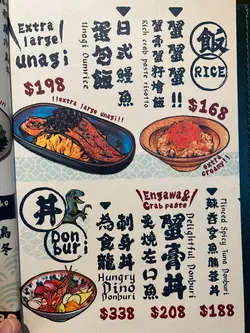 Extra
large
unagi
$198
!!extra large unagi!!
日式鰻魚
蛋包飯
Unagi Omurice
蟹蟹蟹!!
蟹膏蟹籽燴飯
Rich crab paste risotto
飯
RICE
$168
extra creamy!!
丼
Donburi
為食龍
刺身丼
Hungry
Dino
Donburi
$338
Engawa &
Crab Paste
蟹膏丼
炙燒左口魚
Delightful Donburi
$208
Minced Spicy Tuna Donburi
$188